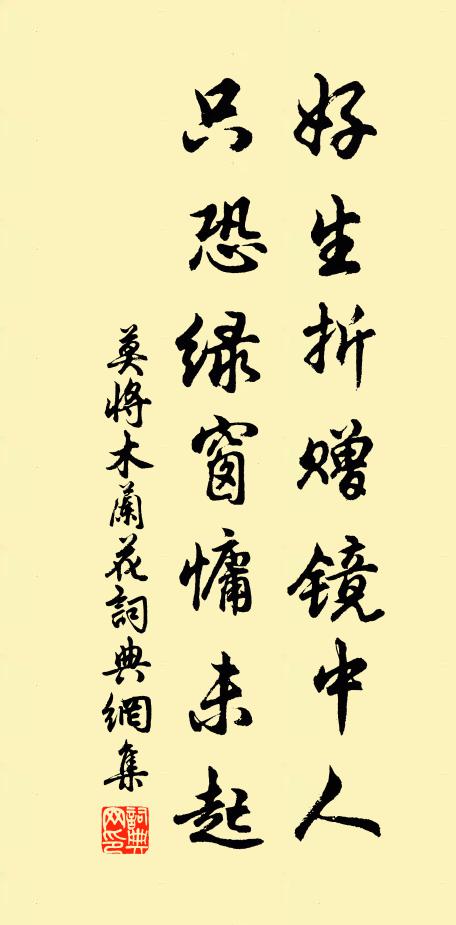 好生折赠镜中人
只恐绿窗慵未起
莫将木蘭花詞典網集
詞典网印